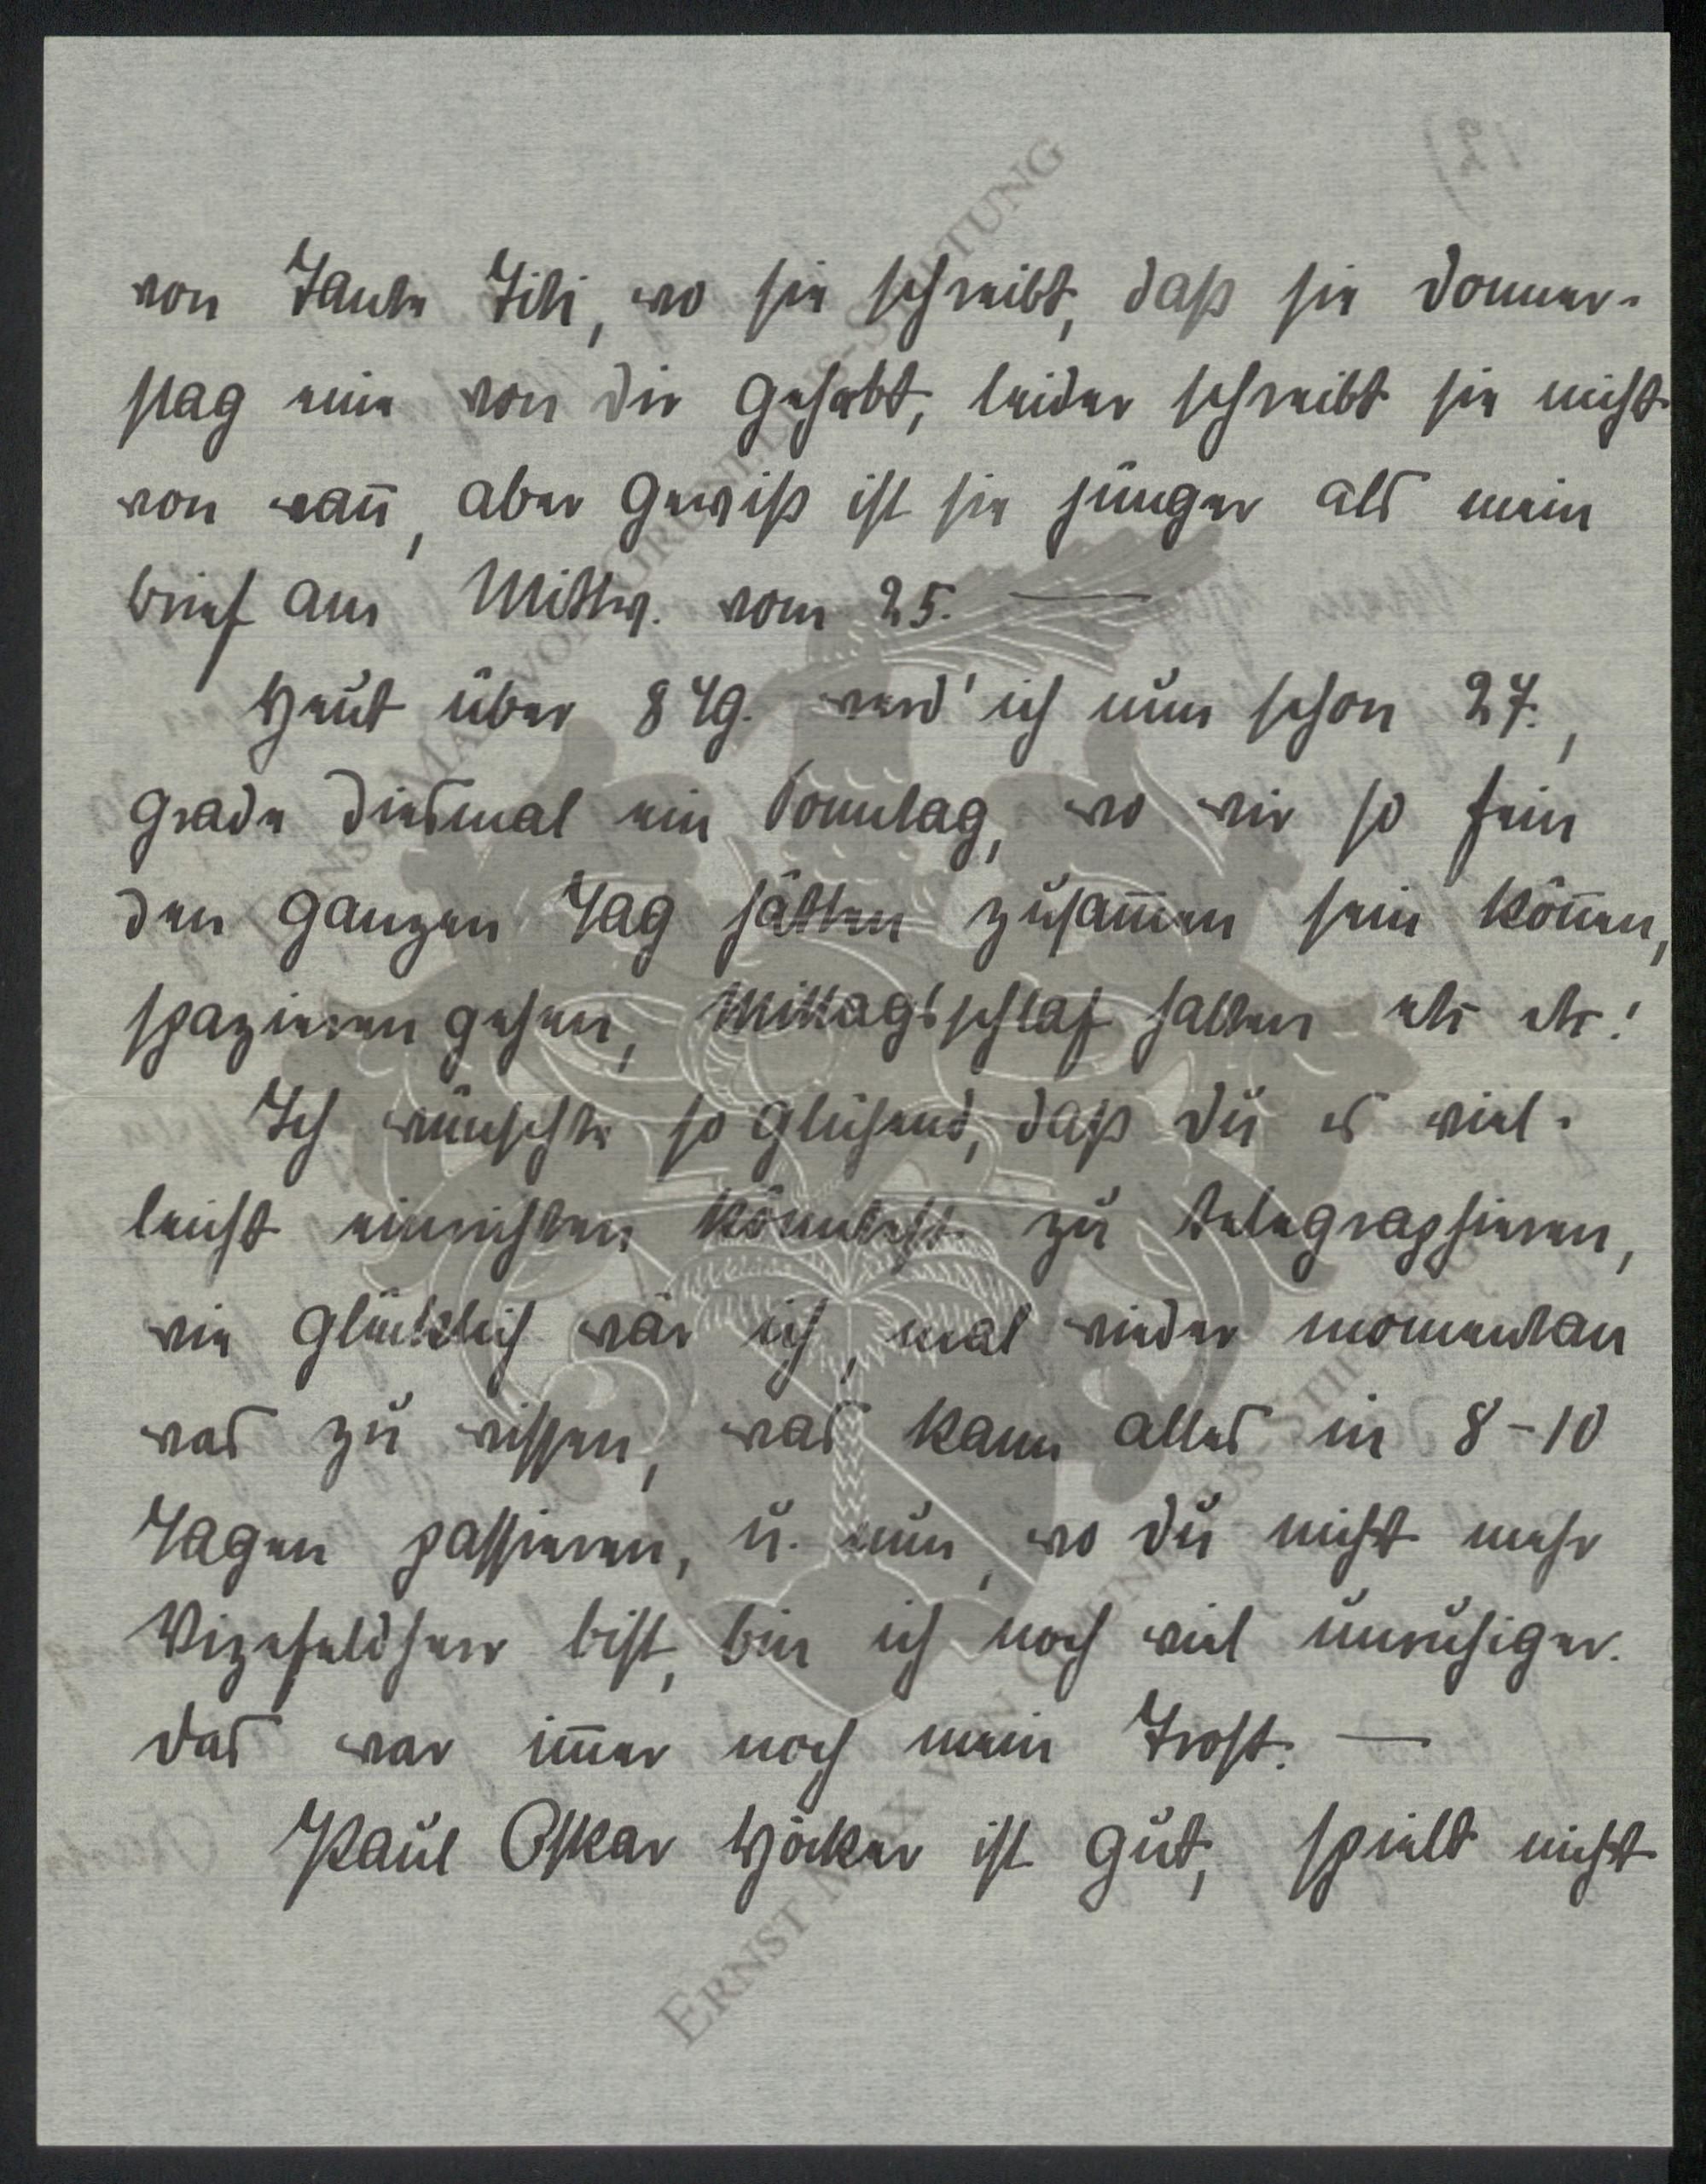 von Tante Titi, wo sie schreibt, daß sie Donner-
stag eine von dir gehabt, leider schreibt sie nicht
von wañ, aber gewiß ist sie jünger als mein
Brief am Mittw. vom 25. —
Heut über 8 Tg. werd' ich nun schon 27.,
grade diesmal ein Sonntag, wo wir so fein
den ganzen Tag hätten zusam̄en sein kön̄en,
spazieren gehen, Mittagsschlaf halten etc etc!
Ich wünschte so glühend, daß du es viel-
leicht einrichten könntest zu telegraphieren,
wie glücklich wär ich, mal wieder momentan
was zu wissen, was kann alles in 8-10
Tagen passieren, u. nun, wo du nicht mehr
Vizefeldherr bist, bin ich noch viel unruhiger.
Das war im̄er noch mein Trost. —
Paul Oskar Höcker ist gut, spielt nicht
ERNST MAX VON GRUNELIUS-STIFTUNG
ERNST MAX VON GRUNELIUS-STIFTUNG